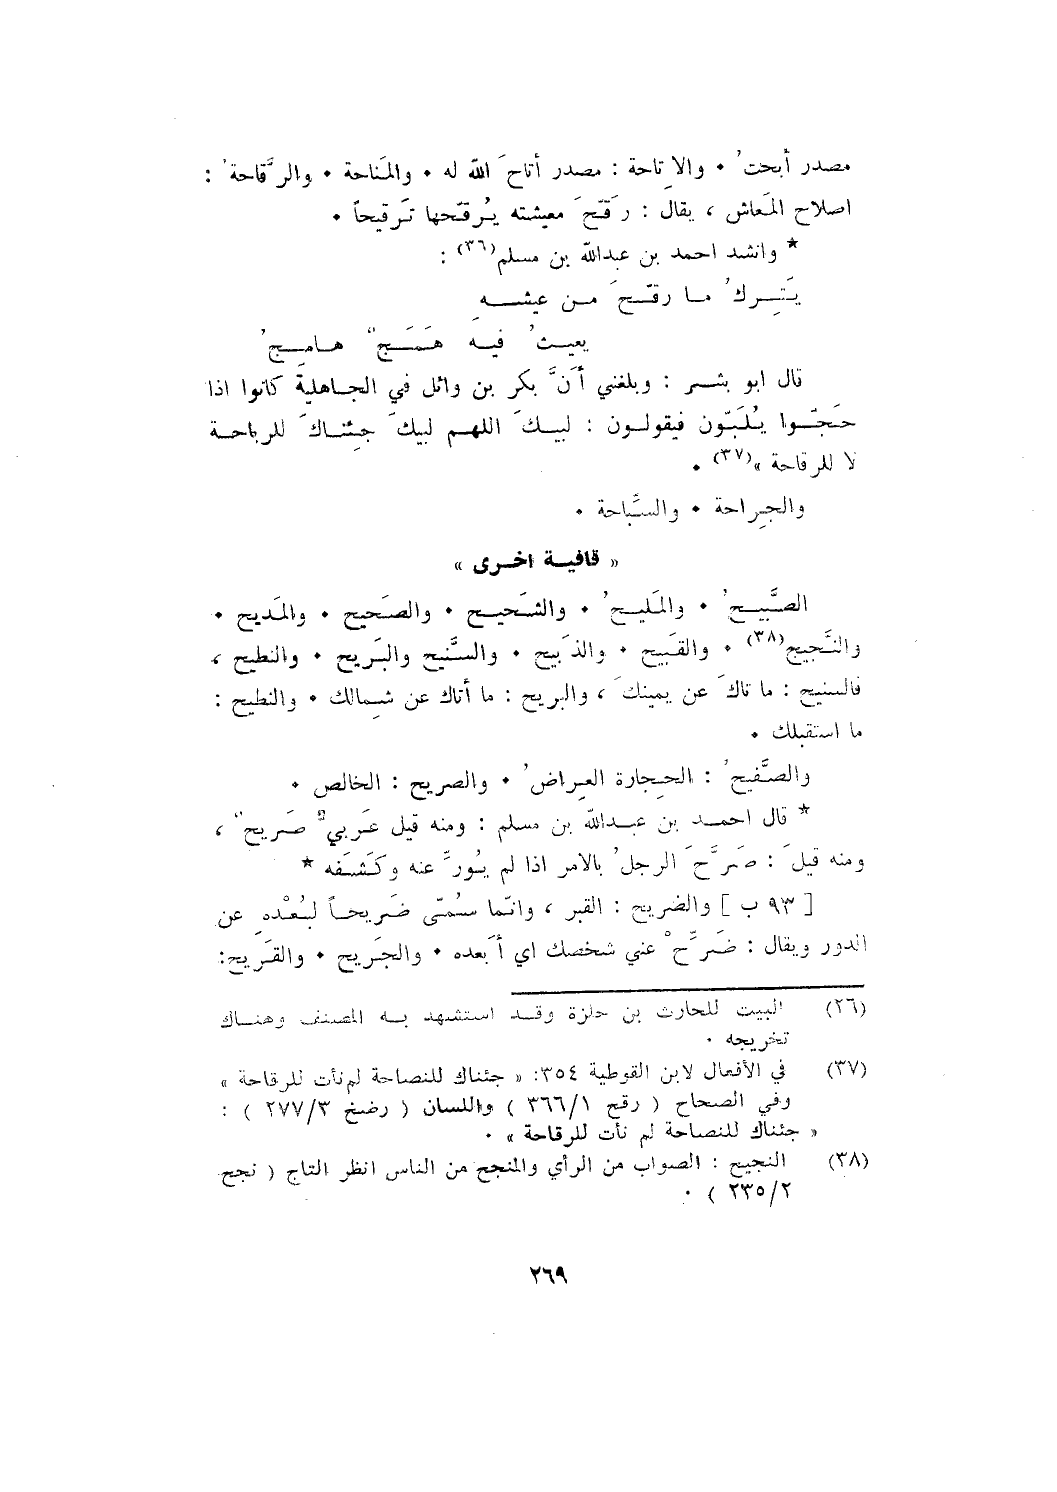 مصدر أبحتُ • والإتاحة : مصدر أتاحَ الله له • والمَناحة • والرَّقاحةُ :
اصلاح المَعاش ، يقال : رَقّحَ معيشته يُرقّحها تَرقيحاً •
* وانشد احمد بن عبدالله بن مسلم(٣٦) :
يَتـرِكُ مـا رقّـحَ مـن عيشـهِ
يعيـثُ فيـه هَمَـجٌ هـامِـجُ
قال ابو بشـر : وبلغني أَنَّ بكر بن وائل في الجـاهلية كانوا اذا
حَجّـوا يُلَبّون فيقولـون : لبيـكَ اللهـم لبيكَ جِئنـاكَ للرباحـة
لا للرقاحة »(٣٧) •
والجِراحة • والسِّباحة •
« قافيـة اخـرى »
الصَّبيـحُ • والمَليـحُ • والشَحيـح • والصَحيح • والمَديح •
والنَّجيح(٣٨) • والقَبيح • والذَبيح • والسَّنيح والبَريح • والنطيح ،
فالسنيح : ما تاكَ عن يمينكَ ، والبريح : ما أتاك عن شِمالك • والنطيح :
ما استقبلك •
والصَّفيحُ : الحِجارة العِراضُ • والصريح : الخالص •
* قال احمـد بن عبـدالله بن مسلم : ومنه قيل عَربيٌ صَريحٌ ،
ومنه قيلَ : صَرَّحَ الرجلُ بالامر اذا لم يُورَّ عنه وكَشَفه *
[ ٩٣ ب ] والضريح : القبر ، وانّما سُمّي ضَريحـاً لبُعْدهِ عن
الدور ويقال : ضَرِّحْ عني شخصك اي أَبعده • والجَريح • والقَريح:
(٢٦) البيت للحارث بن حلزة وقـد استشهد بـه المصنف وهنـاك
تخريجه •
(٣٧) في الأفعال لابن القوطية ٣٥٤: « جئناك للنصاحة لم نأت للرقاحة »
وفي الصحاح ( رقح ٣٦٦/١ ) واللسان ( رضخ ٢٧٧/٣ ) :
« جئناك للنصاحة لم نأت للرقاحة » •
(٣٨) النجيح : الصواب من الرأي والمنجح من الناس انظر التاج ( نجح
٢٣٥/٢ ) •
٢٦٩